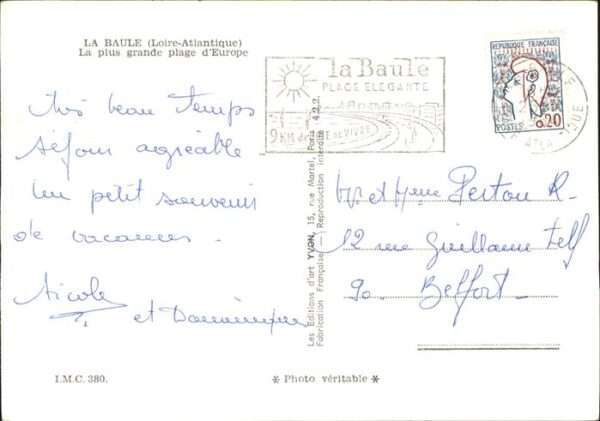 LA BAULE (Loire-Atlantique)
La plus grande plage d'Europe
la Baule
PLAGE ELEGANTE
9 KM DE JOIE DE VIVRE
REPUBLIQUE FRANÇAISE
POSTES 0,20
très beau temps
séjour agréable
Un petit souvenir
de vacances.
Nicole
et Dominique
Les Editions d'art YVON, 15, rue Martel, Paris
Fabrication Française — Reproduction interdite
Mr et Mme Perton R.
12 rue Guillaume Tell
90. Belfort.
I.M.C. 380.
* Photo véritable *